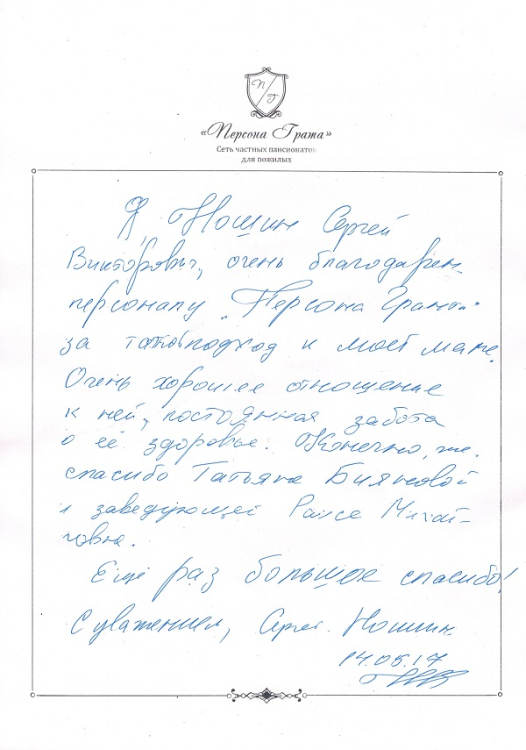 П Г
«Персона Грата»
Сеть частных пансионатов
для пожилых
Я, Ношин Сергей
Викторович, очень благодарен
персоналу „Персона Гранта"
за такой подход к моей маме.
Очень хорошее отношение
к ней, постоянная забота
о её здоровье. Конечно, же
спасибо Татьяне Бияновой
и заведующей Раисе Михай-
ловне.
Ещё раз большое спасибо!
С уважением, Сергей Ношин.
14.05.17